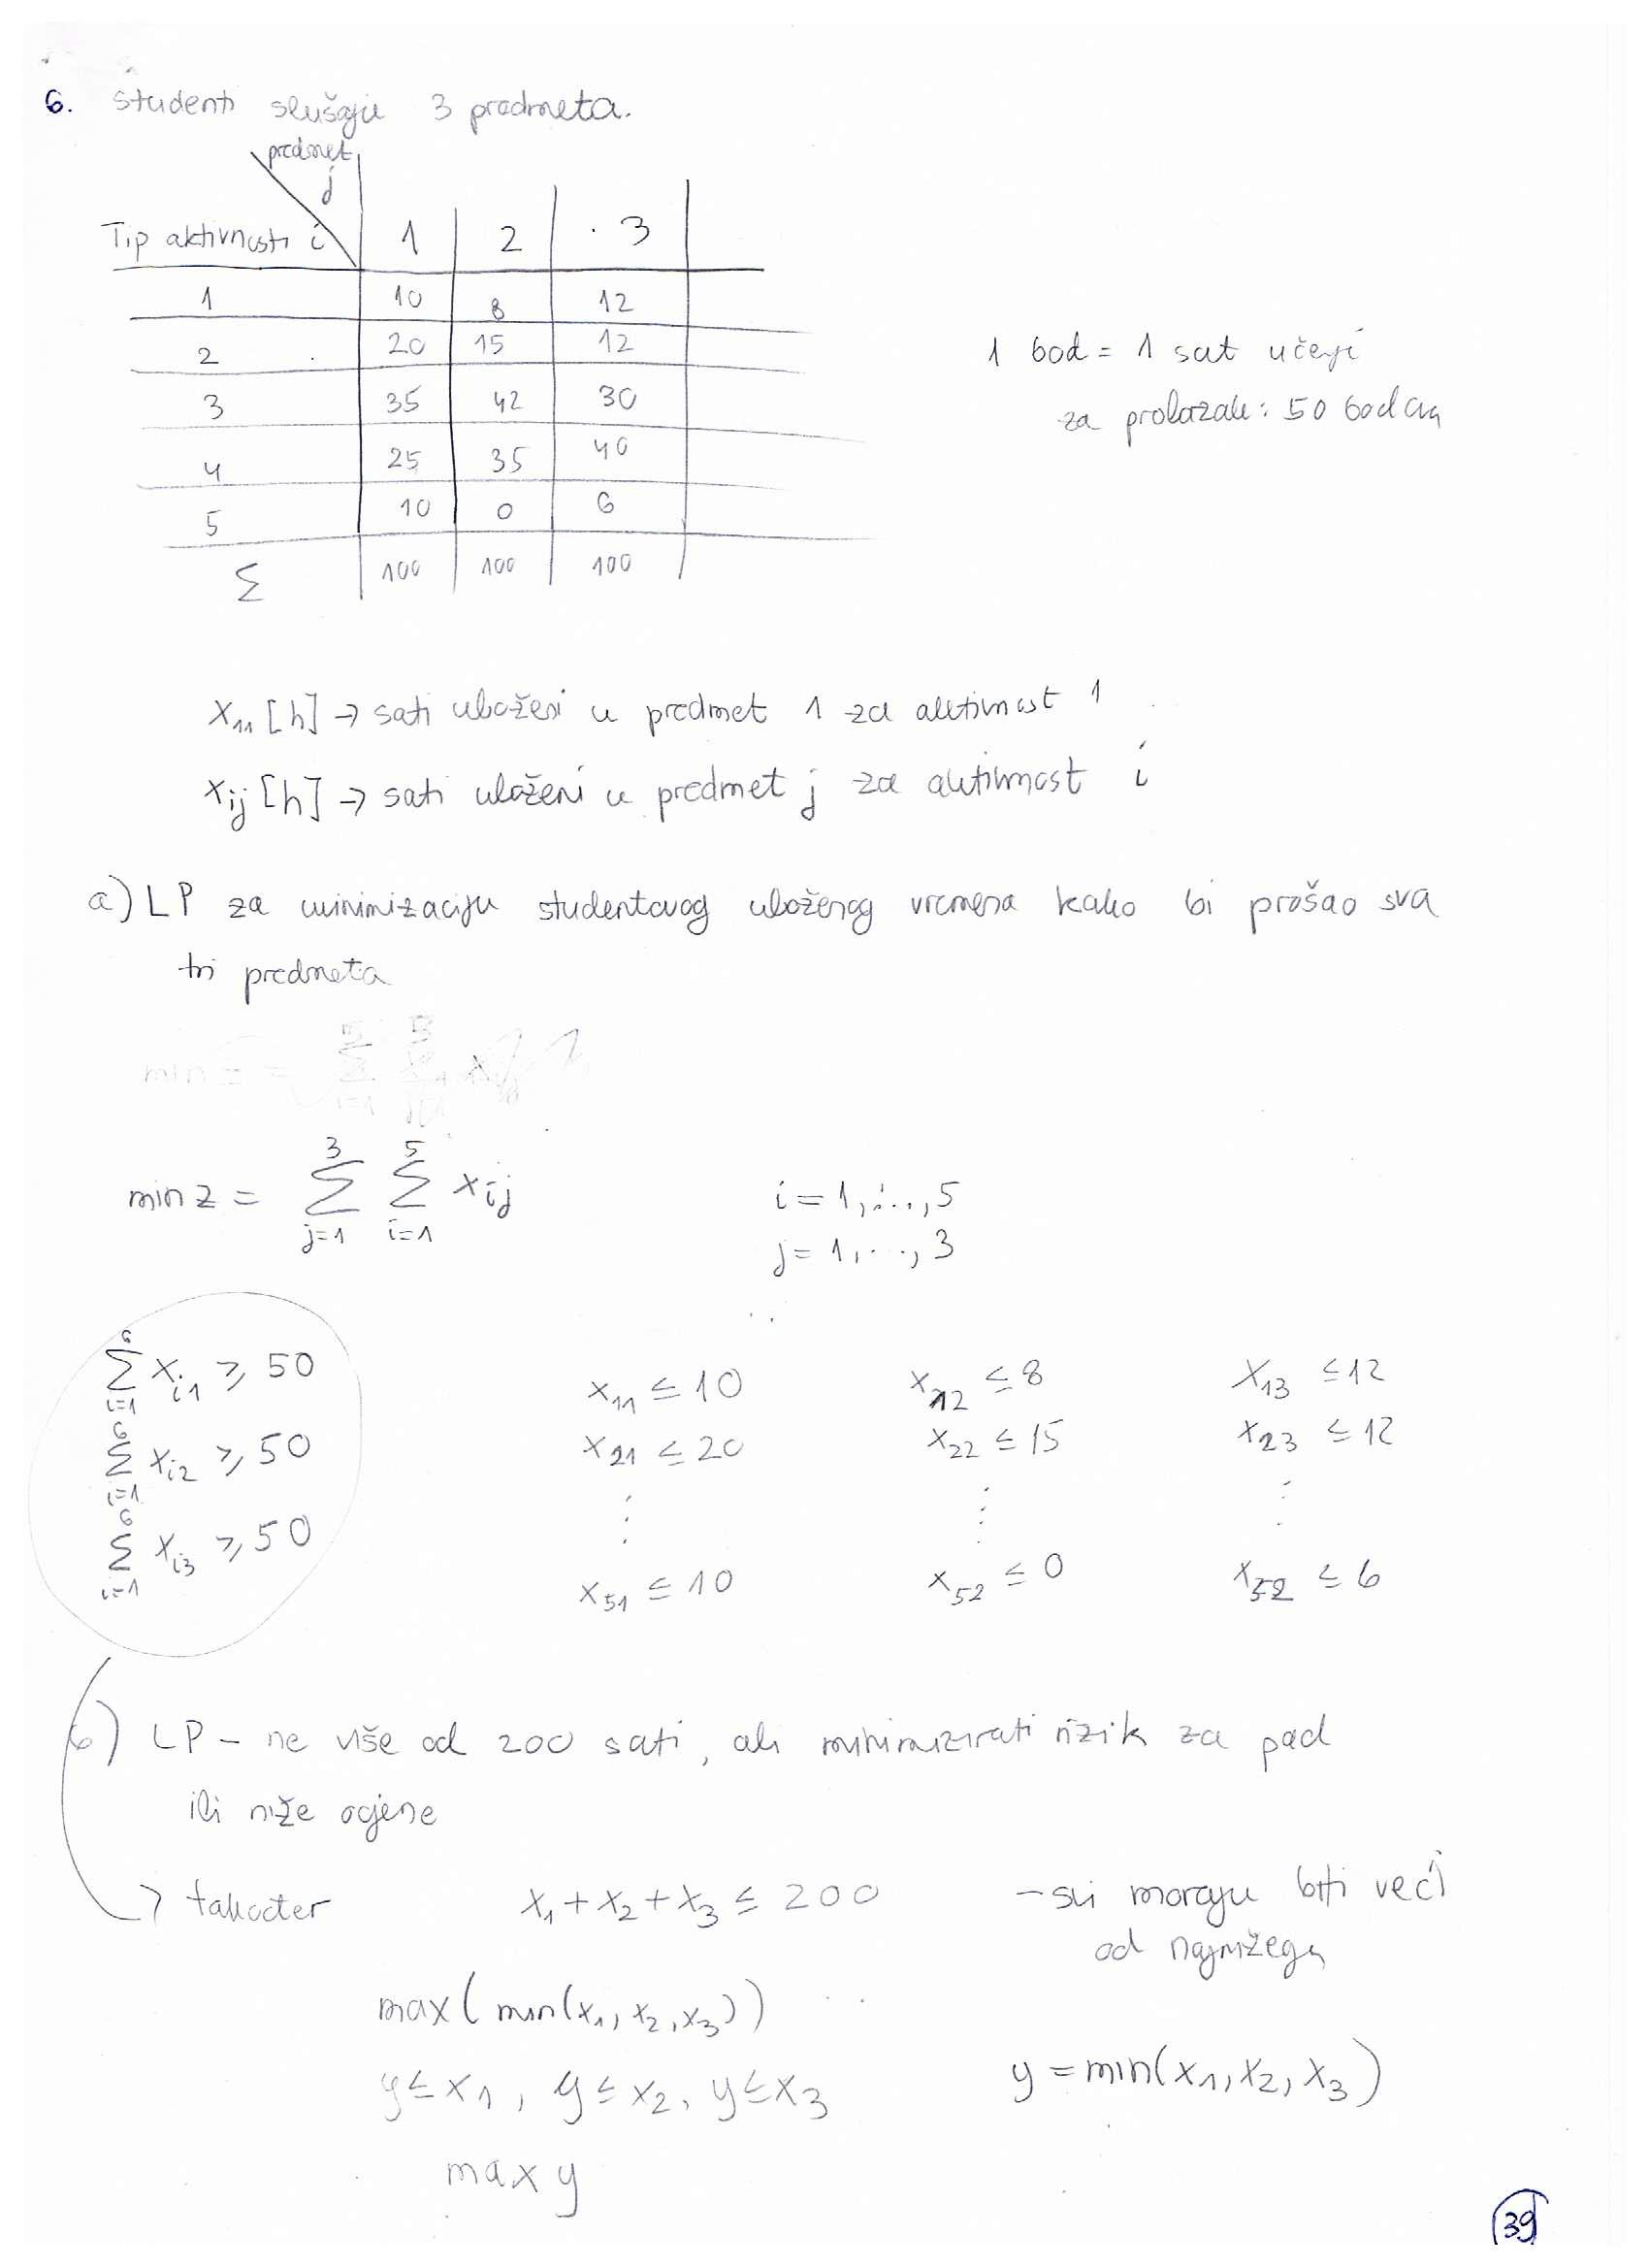 6. Studenti slušaju 3 predmeta.
predmet j
Tip aktivnosti i 1 2 3
1 10 8 12
2 20 15 12
3 35 42 30
4 25 35 40
5 10 0 6
Σ 100 100 100
1 bod = 1 sat učenja
za prolazak: 50 bodova
x₁₁ [h] → sati uloženi u predmet 1 za aktivnost 1
xij [h] → sati uloženi u predmet j za aktivnost i
a) LP za minimizaciju studentovog uloženog vremena kako bi prošao sva
tri predmeta
min z = Σ_{j=1}^{3} Σ_{i=1}^{5} xij
i = 1, ..., 5
j = 1, ..., 3
Σ_{i=1}^{6} x_{i1} ≥ 50
Σ_{i=1}^{6} x_{i2} ≥ 50
Σ_{i=1}^{6} x_{i3} ≥ 50
x₁₁ ≤ 10 x₁₂ ≤ 8 x₁₃ ≤ 12
x₂₁ ≤ 20 x₂₂ ≤ 15 x₂₃ ≤ 12
⋮ ⋮ ⋮
x₅₁ ≤ 10 x₅₂ ≤ 0 x₅₂ ≤ 6
b) LP – ne više od 200 sati, ali minimizirati rizik za pad
ili niže ocjene
→ također x₁ + x₂ + x₃ ≤ 200
- svi moraju biti veći
od najnižega
max(min(x₁, x₂, x₃))
y ≤ x₁, y ≤ x₂, y ≤ x₃
y = min(x₁, x₂, x₃)
max y
39